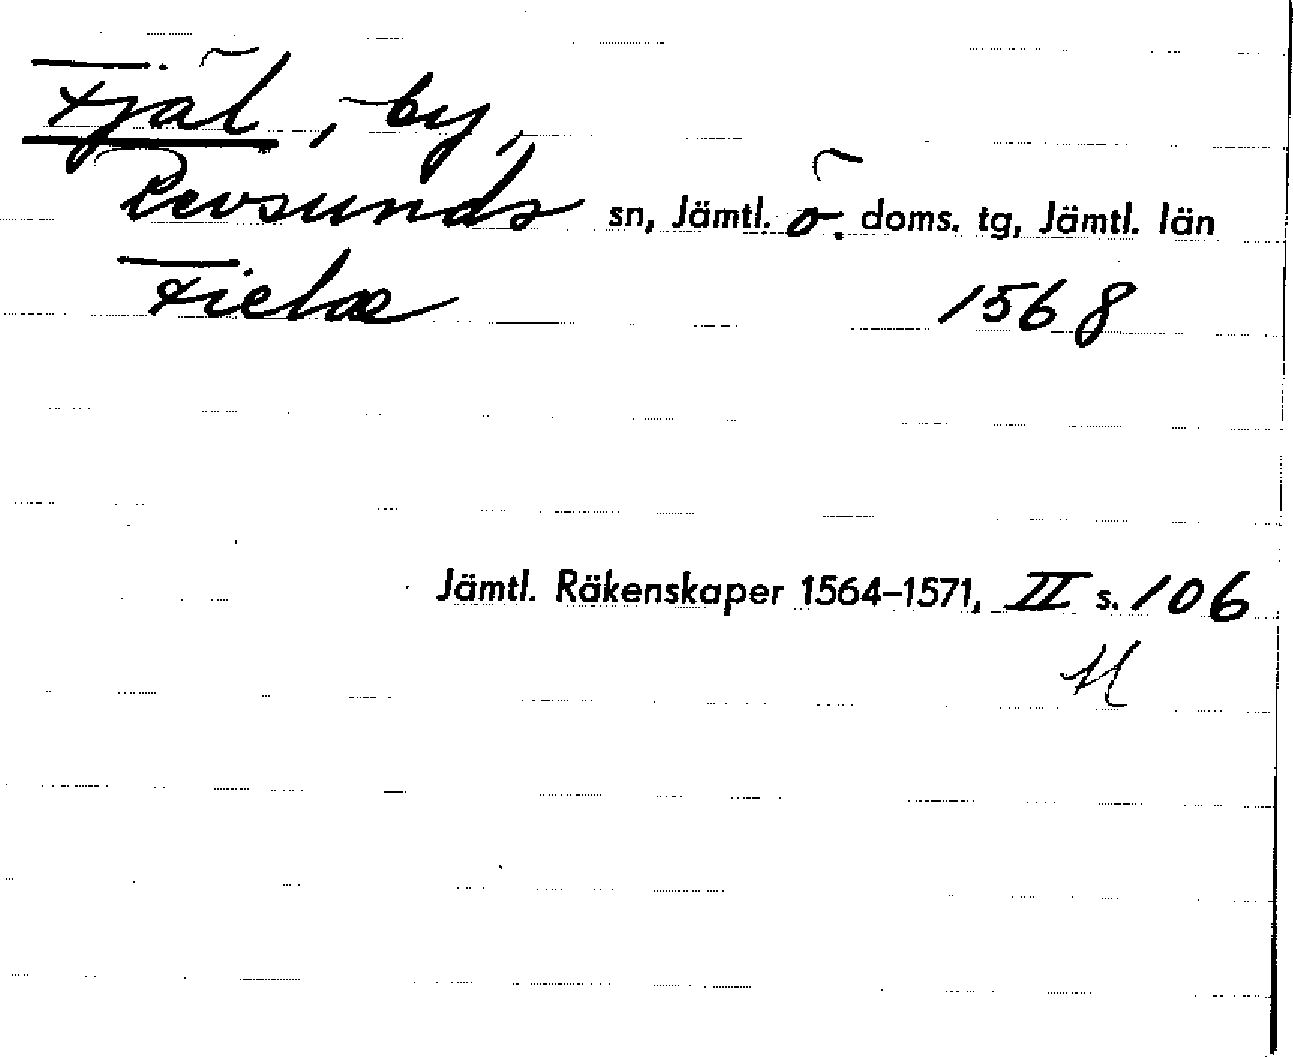 Fjäl, by,
Revsunds sn, Jämtl. ö. doms. tg, Jämtl. län
Fielæ 1568
Jämtl. Räkenskaper 1564–1571, II s. 106